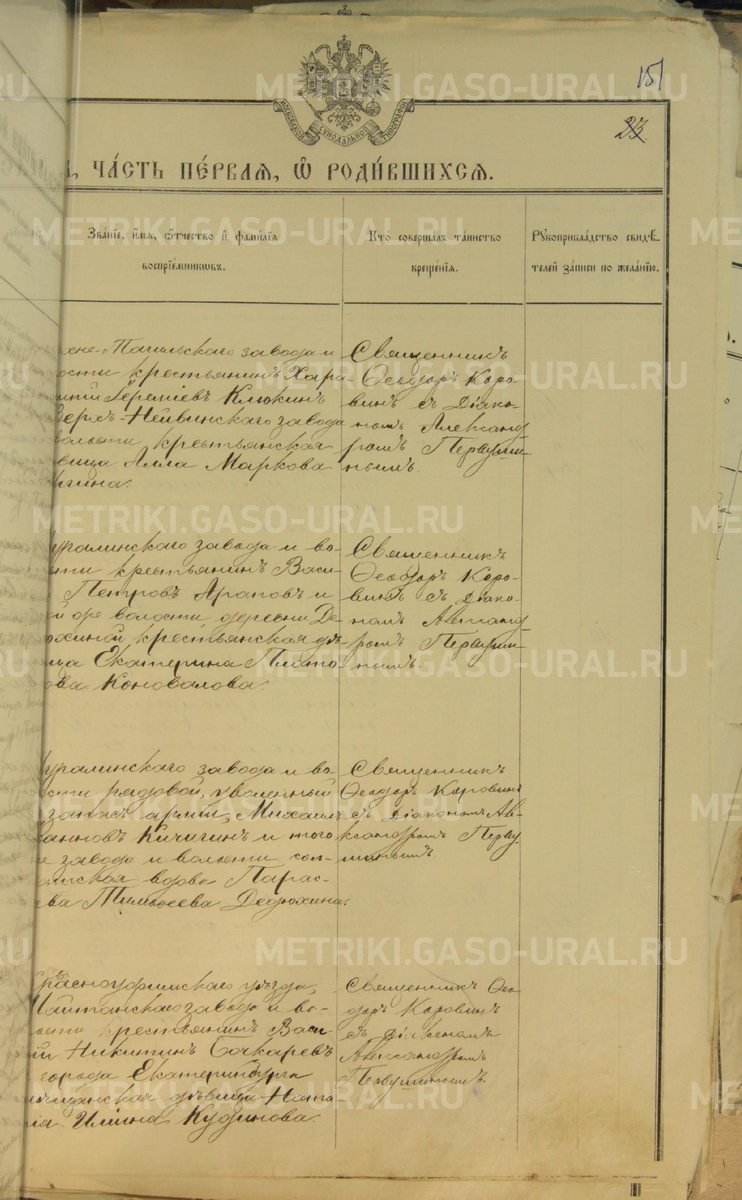 15
23
МОСКОВСКОЙ СѴНОДАЛЬНОЙ ТИПОГРАФІИ
ЧА́СТЬ ПЕ́РВАѦ, Ѡ҆ РОДИ́ВШИХСѦ.
Зва́нїе, и҆́мѧ, ѻ҆́тчество и҆ фами́лїѧ
воспрїе́мникѡвъ.
Кто̀ соверша́лъ та́инство
креще́нїѧ.
Рꙋкоприкла́дство свидѣ́-
телей за́писи по жела́нїю.
хне-Тагильскаго завода и
ости крестьянинъ Хара-
Іереміевъ Клюкинъ
Верхъ-Нейвинскаго завода
волости крестьянская
вица Алла Маркова
Священникъ
Ѳеодоръ Коро-
винъ съ Діако-
номъ Александ-
ромъ Первуши-
нымъ.
уралинскаго завода и во-
сти крестьянинъ Васи-
Петровъ Араповъ и
й же волости, деревни Де-
крестьянская дѣ-
вица Екатерина Плато-
нова Коновалова.
Священникъ
Ѳеодоръ Коро-
винъ съ Діако-
номъ Александ-
ромъ Первуши-
нымъ.
уралинскаго завода и во-
сти рядовой, уволенный
запасъ арміи, Михаилъ
Ивановъ Кичигинъ и того
же завода и волости сол-
датская вдова Парас-
ева Тимоѳеева Дедюхина.
Священникъ
Ѳеодоръ Коровинъ
съ Діакономъ Але-
ксандромъ Перву-
шинымъ.
Красноуфимскаго уѣзда,
Шайтанскаго завода и во-
лости крестьянинъ Васи-
лій Никитинъ Бочкаревъ
города Екатеринбурга
мѣщанская дѣвица Ната-
лія Ильина Кудинова.
Священникъ Ѳео-
доръ Коровинъ
съ діакономъ
Александромъ
Первушинымъ.
METRIKI.GASO-URAL.RU